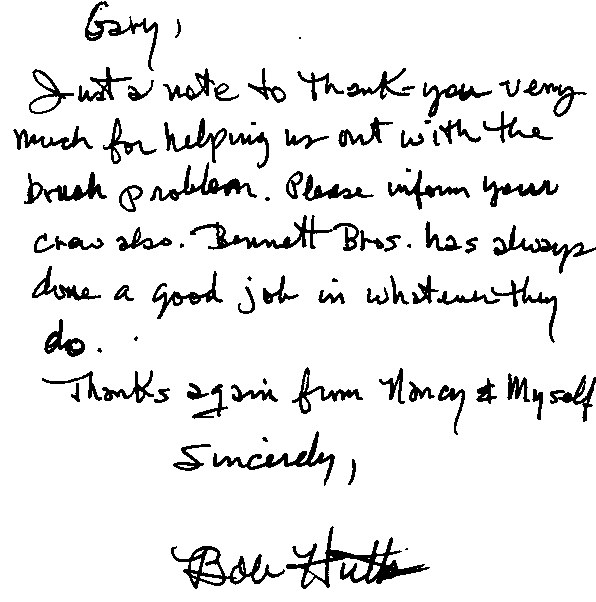 Gary,
Just a note to thank-you very
much for helping us out with the
brush problem. Please inform your
crew also. Bennett Bros. has always
done a good job in whatever they
do.
Thanks again from Nancy & Myself
Sincerely,
Bob